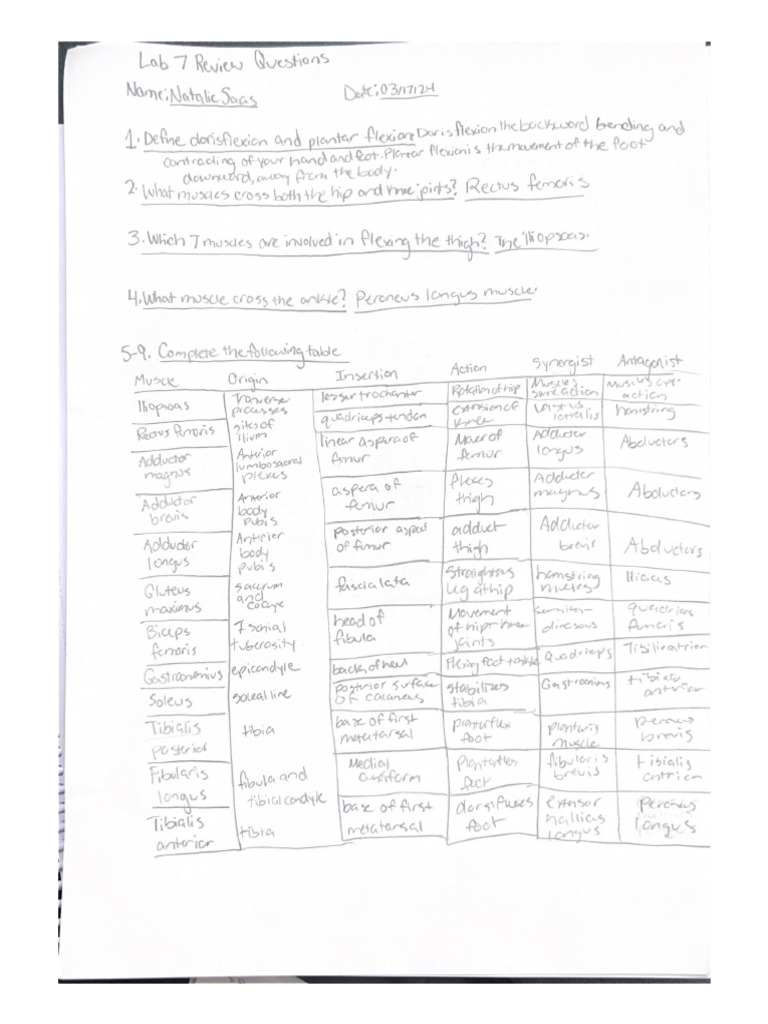 Lab 7 Review Questions
Name: Natalie Saas Date: 03/17/24
1. Define dorisflexion and plantar flexion: Dorisflexion the backward bending and
contracting of your hand and foot. Plantar flexion is the movement of the foot
downward, away from the body.
2. What muscles cross both the hip and knee joints? Rectus femoris
3. Which 7 muscles are involved in flexing the thigh? The iliopsoas.
4. What muscle cross the ankle? Peroneus longus muscle
5-9. Complete the following table
Muscle Origin Insertion Action Synergist Antagonist
Iliopsoas Tranverse processes lesser trochanter Rotation of hip Muscles same action Muscles action
Rectus femoris sites of ilium quadriceps tendon extension of knee vastus lateralis hamstring
Adductor magnus Antrior lumbosacral plexus linear aspera of femur Mover of femur Adductor longus Abductors
Adductor brevis Anterior body pubis aspera of femur flexes thigh Adductor magnus Abductors
Adductor longus Anterier body pubis posterior aspect of femur adduct thigh Adductor brevis Abductors
Gluteus maximus sacrum and fascia lata Straightens leg at hip hamstring muscles Iliacus
Biceps femoris Ischial tuberosity head of fibula Movement of hip + knee joints
Gastrocnemius epicondyle back of heel Flexing foot + ankle Quadriceps
Soleus soleal line posterior surface of calcaneus stabilizes tibia
Tibialis posterior tibia base of first metatarsal plantarflex foot plantaris muscle brevis
Fibularis longus fibula and tibial condyle Medial foot fibularis brevis tibialis
Tibialis anterior tibia base of first metatarsal foot extensor longus longus